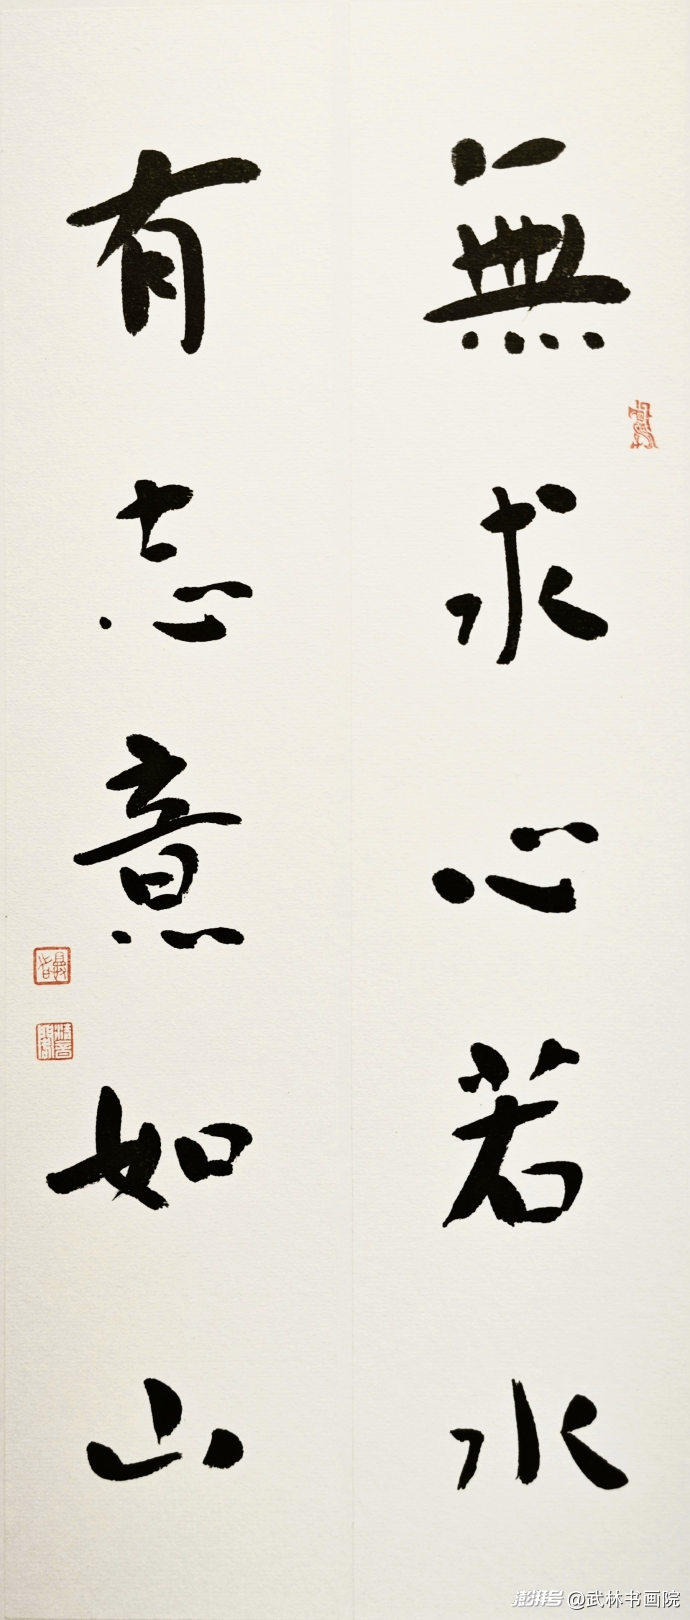 無求心若水
有志意如山
澎湃号@武林书画院